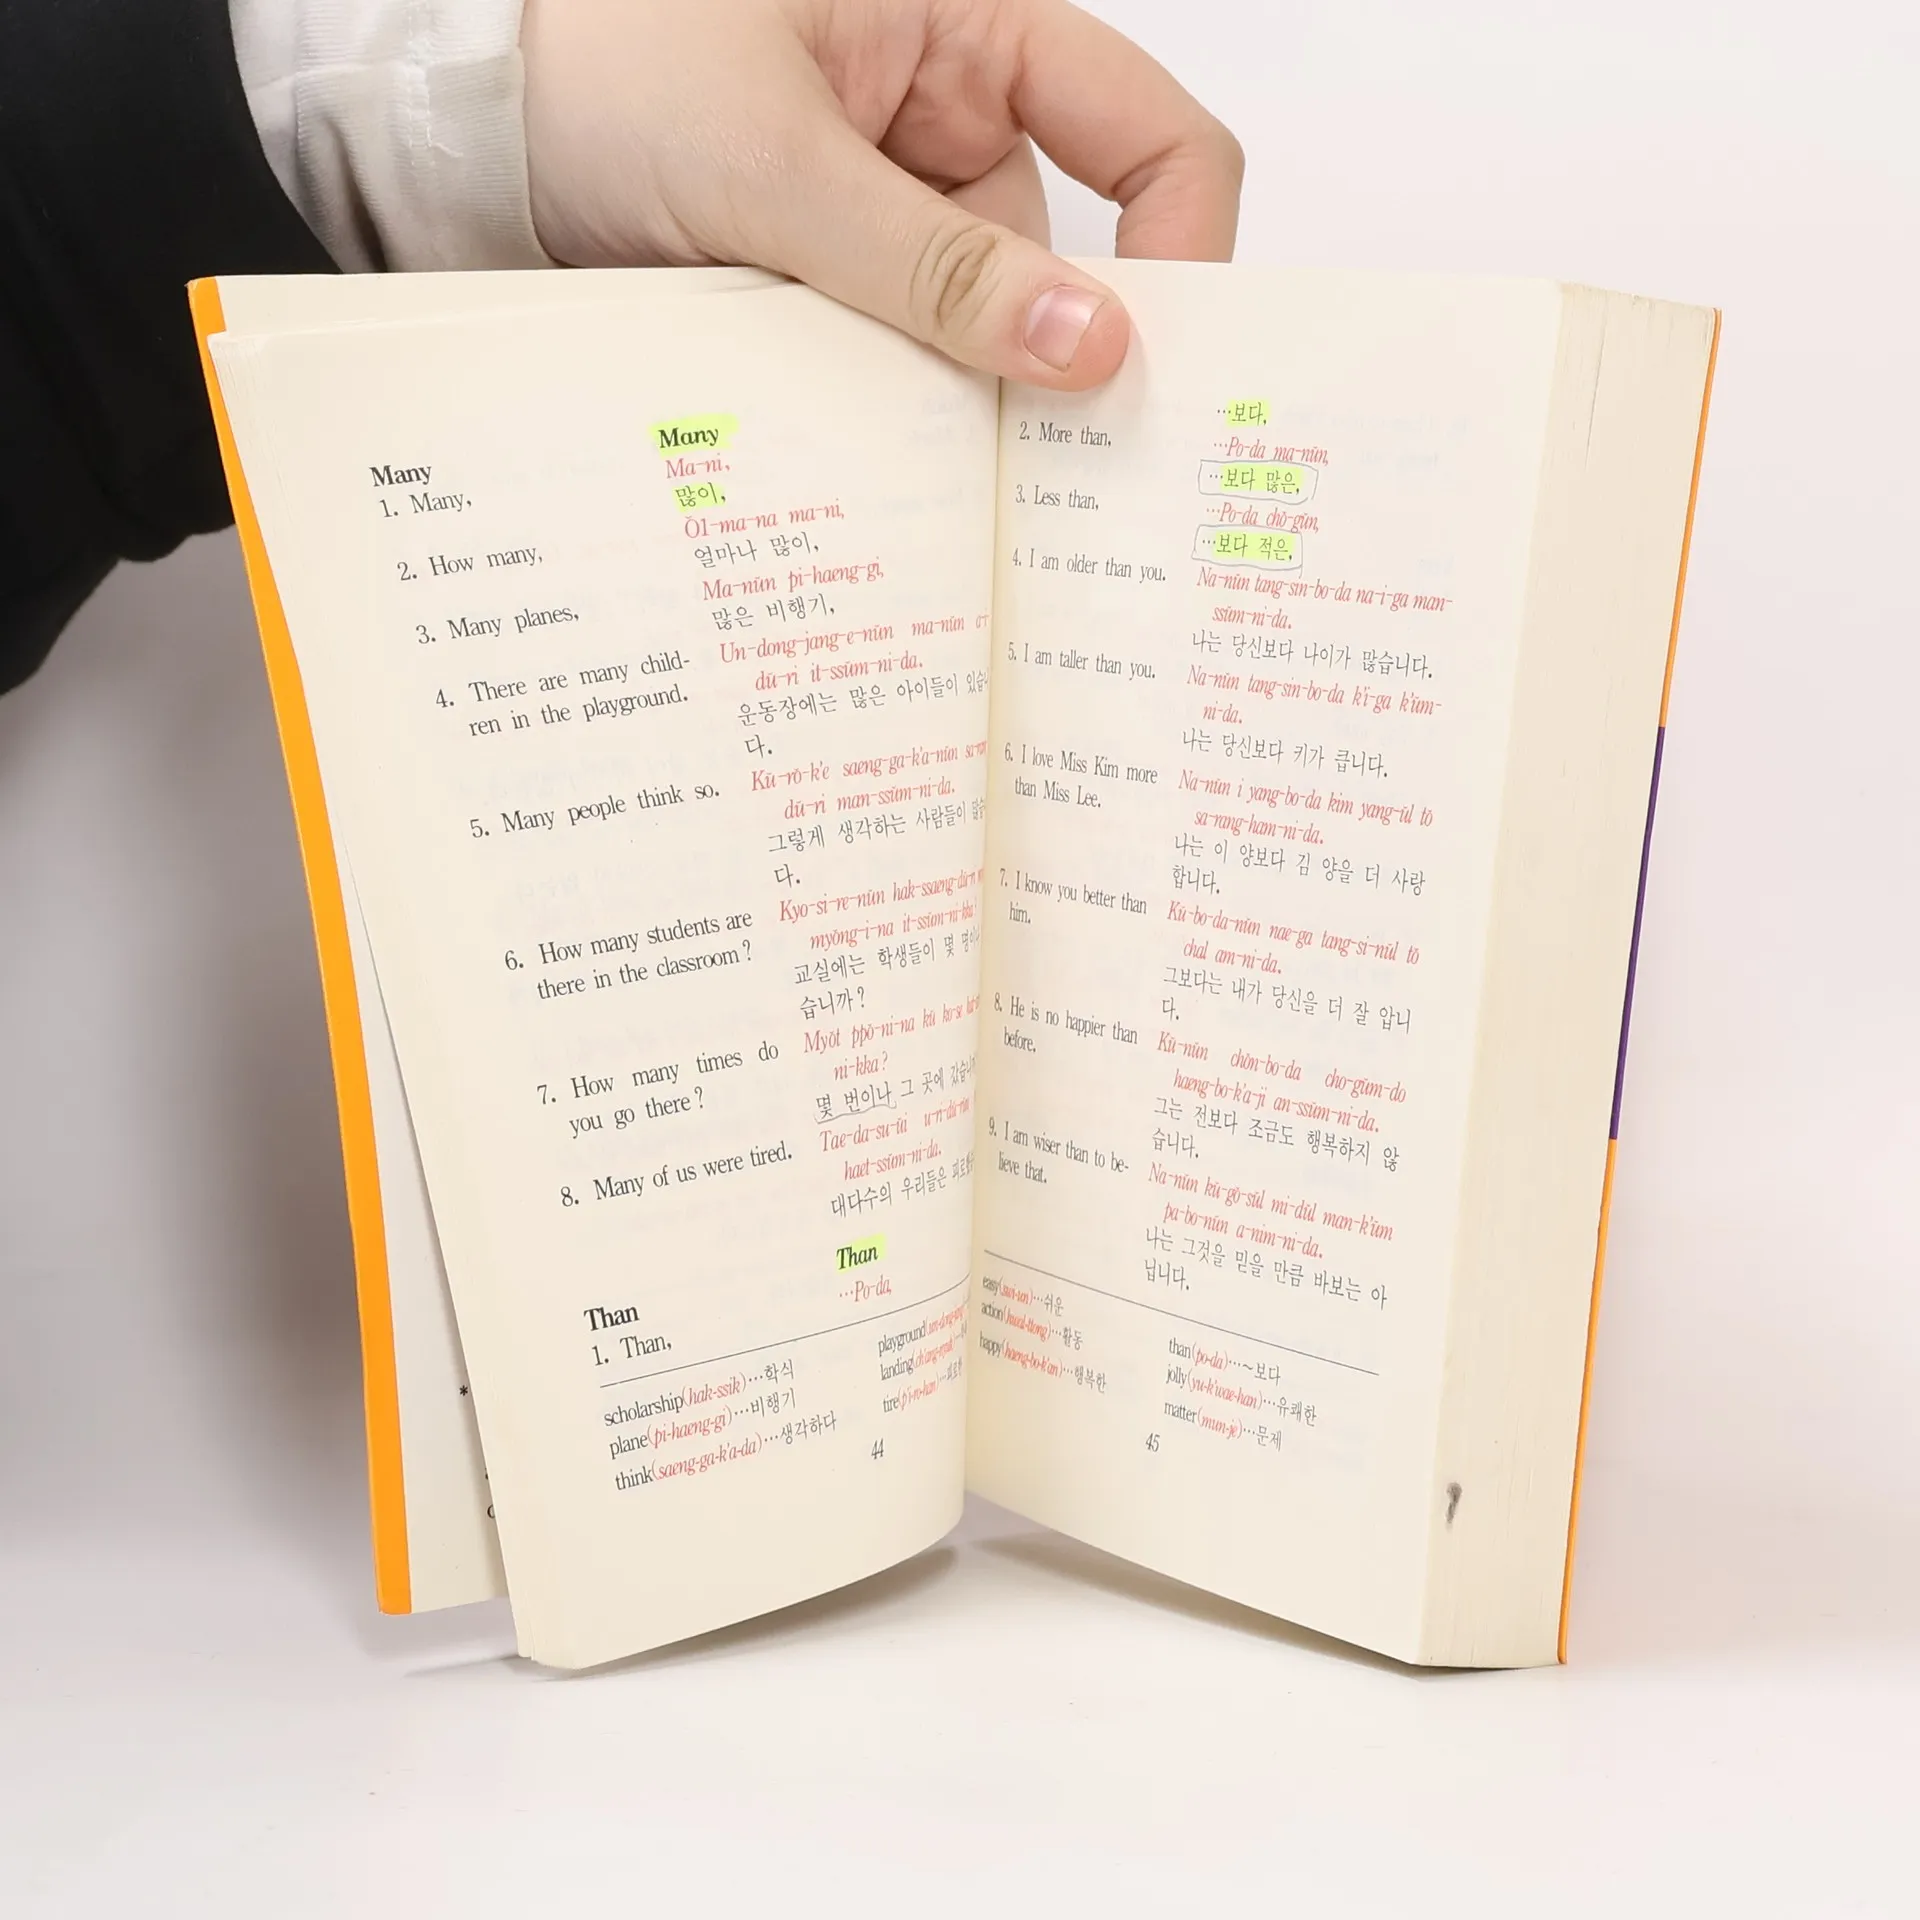 Many
Many
Ma-ni,
1. Many,
많이,
Ŏl-ma-na ma-ni,
2. How many,
얼마나 많이,
Ma-nŭn pi-haeng-gi,
3. Many planes,
많은 비행기,
Un-dong-jang-e-nŭn ma-nŭn
4. There are many child-
dŭ-ri it-ssŭm-ni-da.
ren in the playground.
운동장에는 많은 아이들이
다.
Kŭ-rŏ-k'e saeng-ga-k'a-nŭn
5. Many people think so.
dŭ-ri man-ssŭm-ni-da.
그렇게 생각하는 사람들이
다.
Kyo-si-re-nŭn hak-ssaeng-dŭ-ri
6. How many students are
myŏng-i-na it-ssŭm-ni-kka?
there in the classroom?
교실에는 학생들이 몇
습니까?
Myŏt ppŏ-ni-na kŭ ko-se
7. How many times do
ni-kka?
you go there?
몇 번이나 그 곳에
Tae-da-su-ŭi u-ri-dŭ-rŭn
8. Many of us were tired.
haet-ssŭm-ni-da.
대다수의 우리들은
Than
Than
…Po-da,
1. Than,
scholarship(hak-ssik)…학식
plane(pi-haeng-gi)…비행기
think(saeng-ga-k'a-da)…생각하다
playground
landing
tire(p'i-ro-han)
44
…보다,
2. More than,
…Po-da ma-nŭn,
…보다 많은,
3. Less than,
…Po-da chŏ-gŭn,
…보다 적은,
4. I am older than you.
Na-nŭn tang-sin-bo-da na-i-ga man-
ssŭm-ni-da.
나는 당신보다 나이가 많습니다.
5. I am taller than you.
Na-nŭn tang-sin-bo-da k'i-ga k'ŭm-
ni-da.
나는 당신보다 키가 큽니다.
6. I love Miss Kim more
than Miss Lee.
Na-nŭn i yang-bo-da kim yang-ŭl tŏ
sa-rang-ham-ni-da.
나는 이 양보다 김 양을 더 사랑
합니다.
7. I know you better than
him.
Kŭ-bo-da-nŭn nae-ga tang-si-nŭl tŏ
chal am-ni-da.
그보다는 내가 당신을 더 잘 압니
다.
8. He is no happier than
before.
Kŭ-nŭn chŏn-bo-da cho-gŭm-do
haeng-bo-k'a-ji an-ssŭm-ni-da.
그는 전보다 조금도 행복하지 않
습니다.
9. I am wiser than to be-
lieve that.
Na-nŭn kŭ-gŏ-sŭl mi-dŭl man-k'ŭm
pa-bo-nŭn a-nim-ni-da.
나는 그것을 믿을 만큼 바보는 아
닙니다.
easy(swi-un)…쉬운
action(hwal-ttong)…활동
happy(haeng-bo-k'an)…행복한
than(po-da)…~보다
jolly(yu-k'wae-han)…유쾌한
matter(mun-je)…문제
45